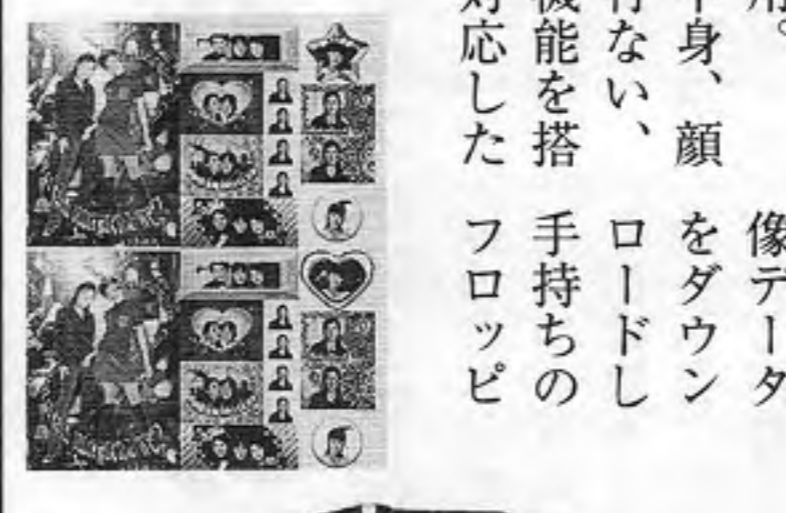 用。
半身、顔
行ない、
機能を搭
対応した
像データ
をダウン
ロードし
手持ちの
フロッピ